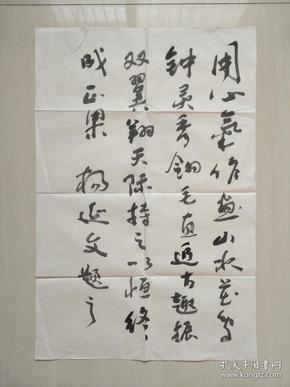 用心气作画山水花鸟
钟灵秀翎毛直追古趣振
双翼翔天际持之以恒终
成正果 杨延文题之
孔夫子旧书网